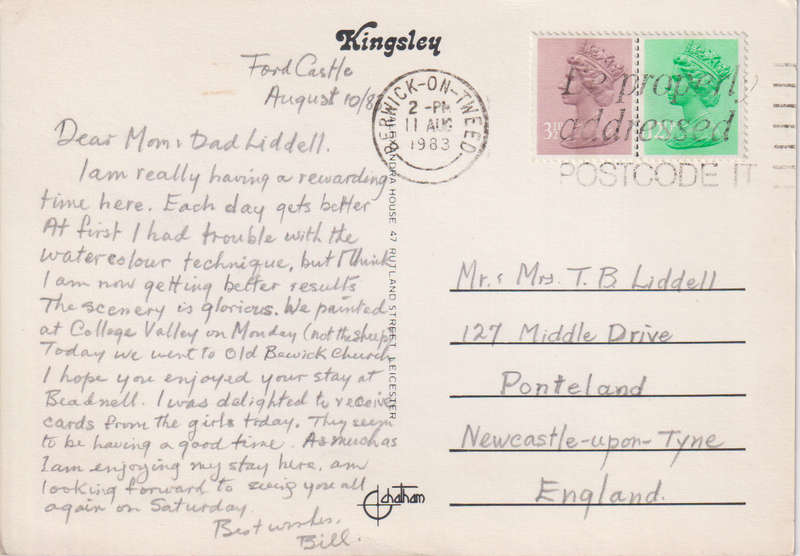 Kingsley
Ford Castle
August 10/83
Dear Mom & Dad Liddell.
I am really having a rewarding
time here. Each day gets better
At first I had trouble with the
watercolour technique, but I think
I am now getting better results
The scenery is glorious. We painted
at College Valley on Monday (not the sheep)
Today we went to Old Bewick Church
I hope you enjoyed your stay at
Beadnell. I was delighted to receive
cards from the girls today. They seem
to be having a good time. As much as
I am enjoying my stay here, am
looking forward to seeing you all
again on Saturday.
Best wishes,
Bill.
BERWICK-ON-TWEED
2 - PM
11 AUG
1983
ALEXANDRA HOUSE 47 RUTLAND STREET LEICESTER
chatham
3½P
Be properly
addressed
POSTCODE IT
Mr. & Mrs. T. B. Liddell
127 Middle Drive
Ponteland
Newcastle-upon-Tyne
England.